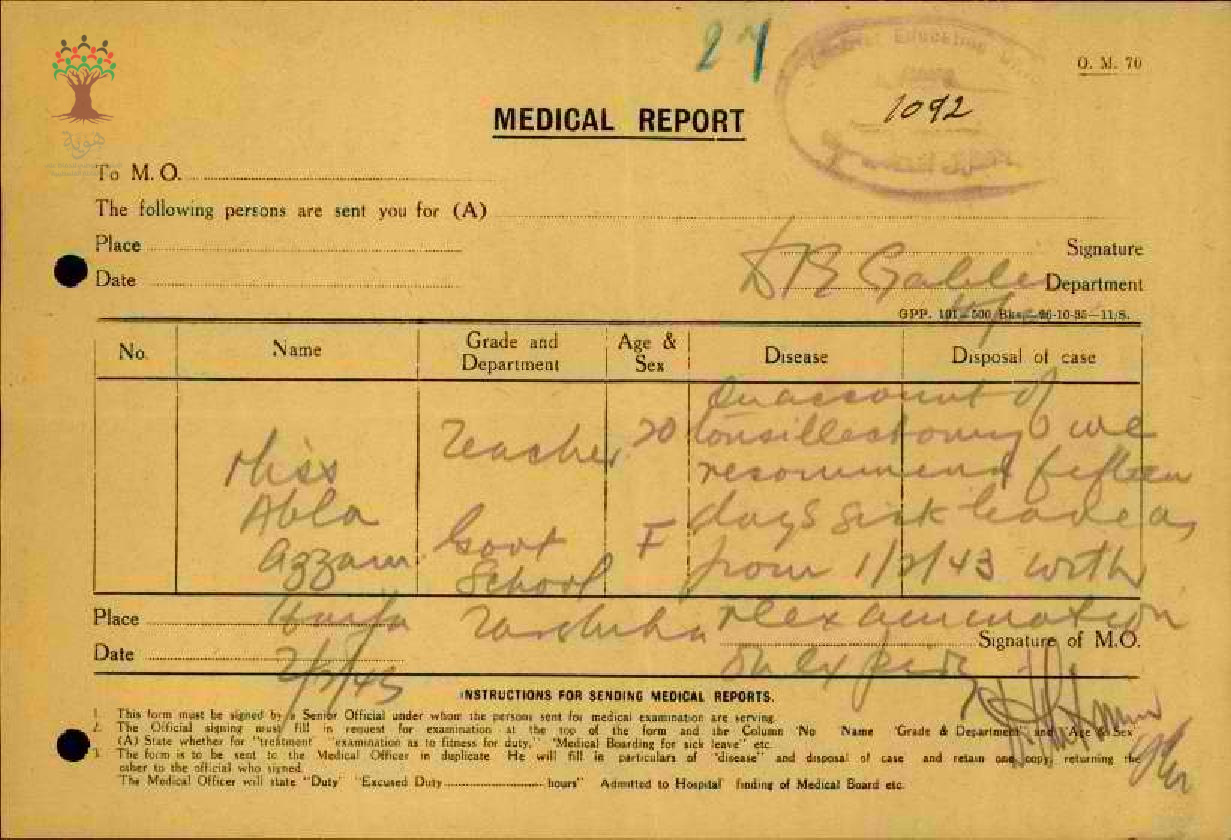 27
O. M. 70
1092
جذرية
MEDICAL REPORT
To M. O.
The following persons are sent you for (A)
Place
Signature
Date
Department
GPP. 101—500 Bks.—26-10-35—11/S.
No. Name Grade and Department Age & Sex Disease Disposal of case
Miss Abla Azzam
Teacher Govt School Tarshiha
20 F
On account of
tonsillectomy we
recommend fifteen
days sick leave as
from 1/2/43 with
reexamination
on expiry
Place Haifa
Signature of M.O.
Date 2/2/43
INSTRUCTIONS FOR SENDING MEDICAL REPORTS.
1. This form must be signed by a Senior Official under whom the persons sent for medical examination are serving.
2. The Official signing must fill in request for examination at the top of the form and the Column "No Name "Grade & Department" and "Age & Sex"
(A) State whether for "treatment" examination as to fitness for duty," "Medical Boarding for sick leave" etc.
3. The form is to be sent to the Medical Officer in duplicate He will fill in particulars of "disease" and disposal of case and retain one copy, returning the
other to the official who signed.
The Medical Officer will state "Duty" "Excused Duty hours" Admitted to Hospital finding of Medical Board etc.